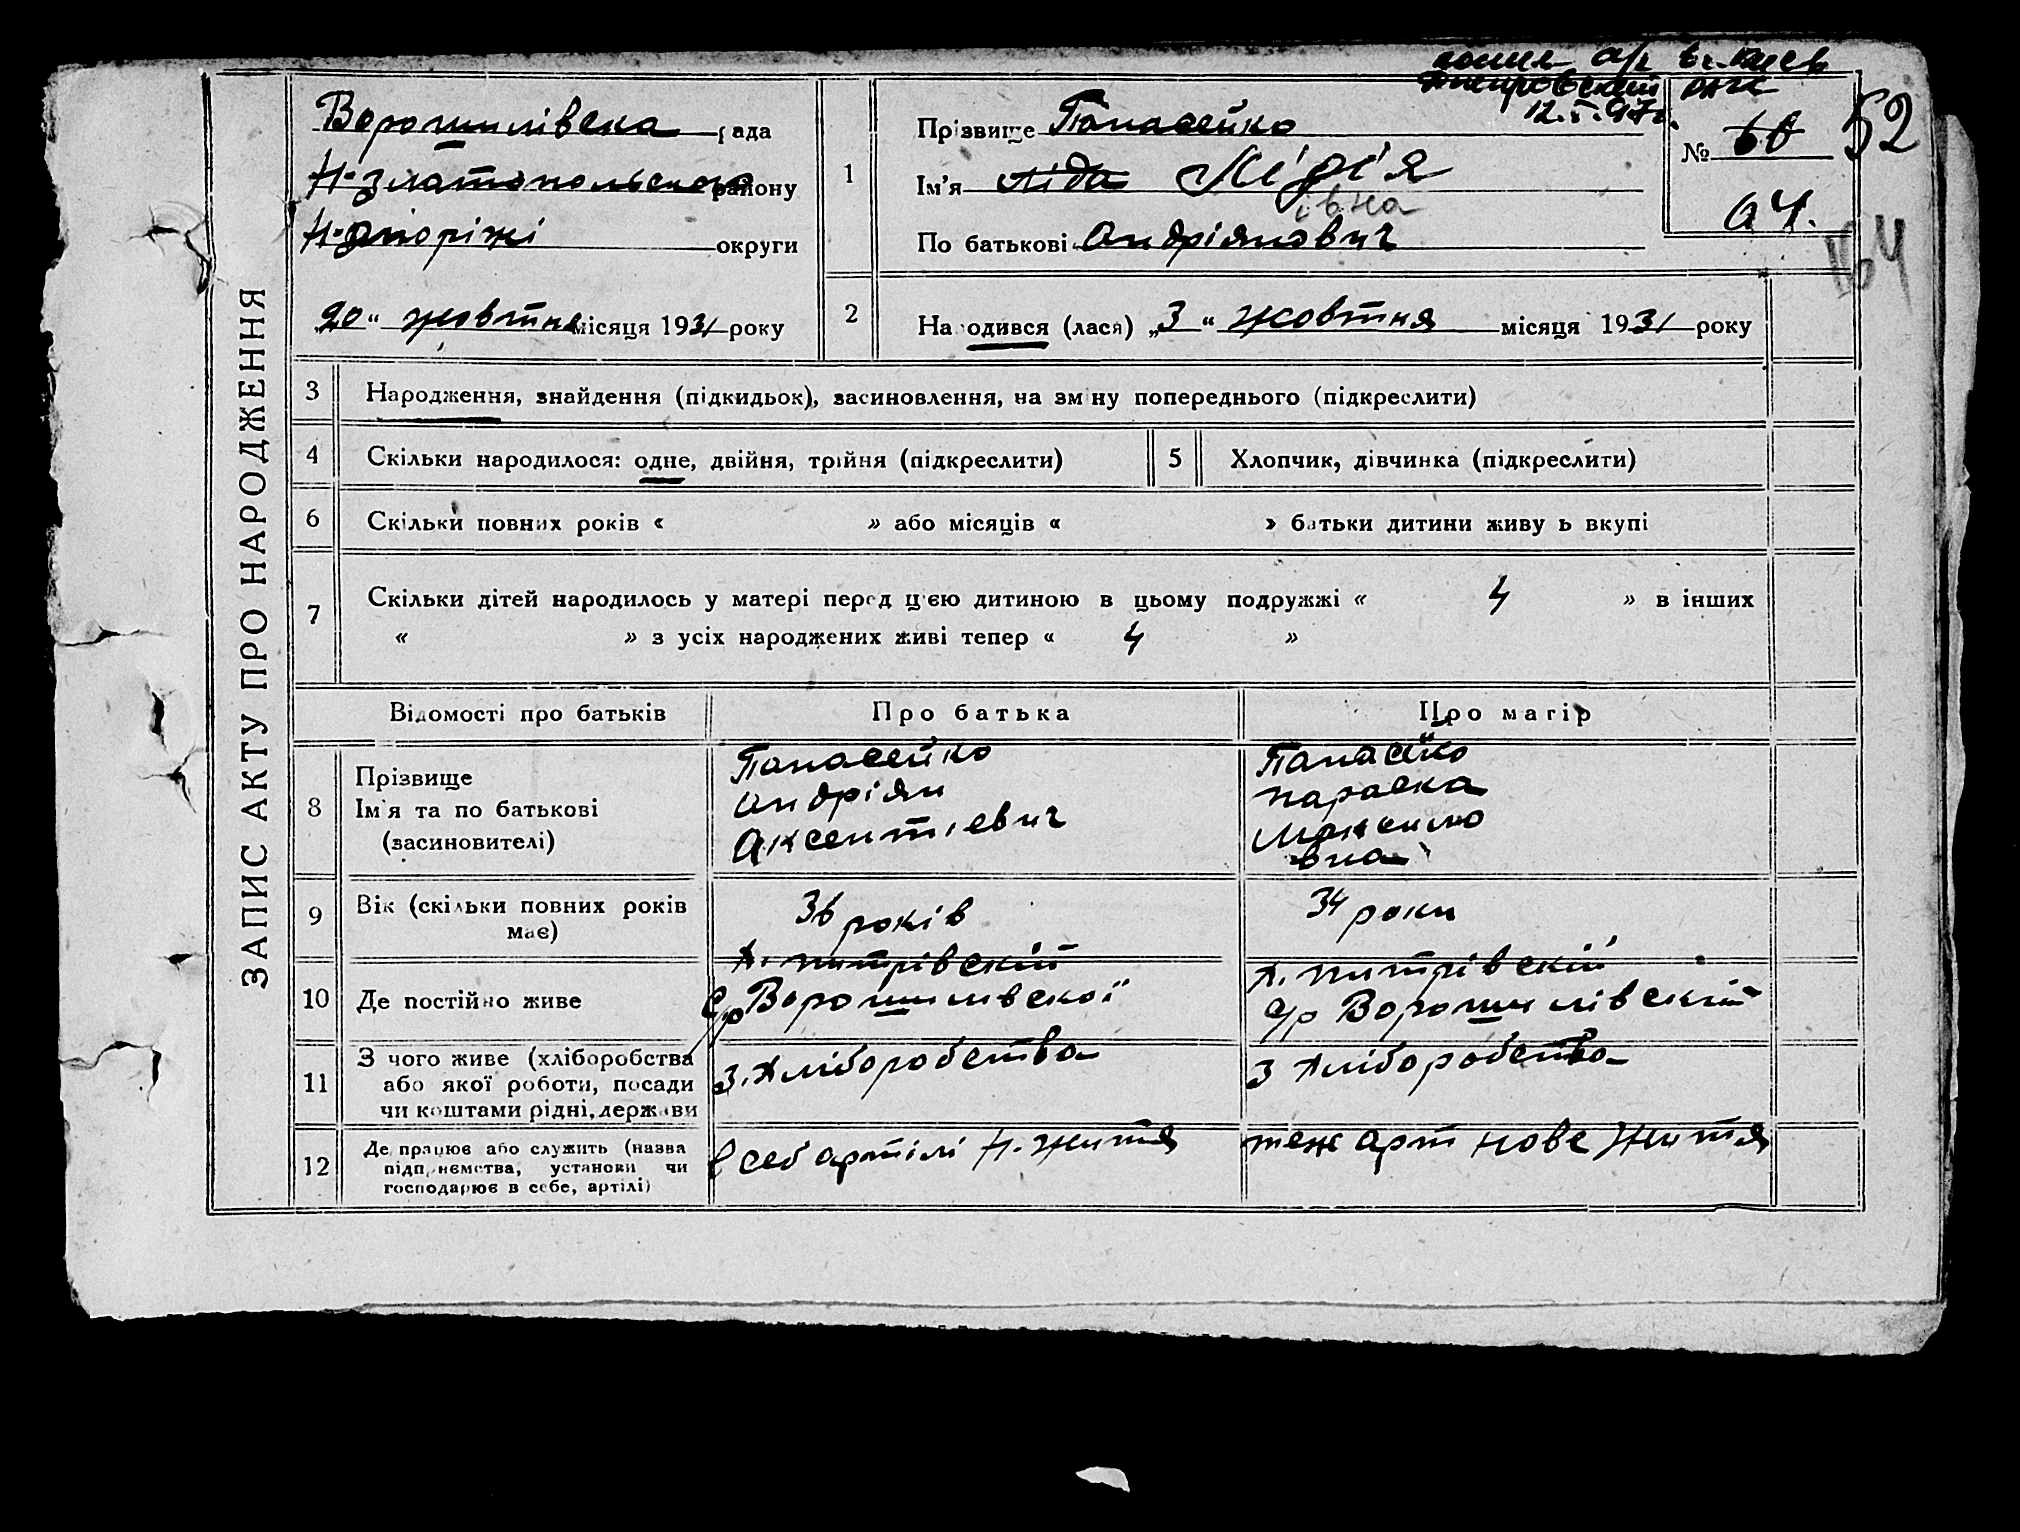 копия а/з в г. Киев
Днепровский ЗАГС
12.X.97г.
Ворошилівська рада
Н-златопольского району
Н-Запоріжі округи
20 “ жовтня місяця 1931 року
1
Прізвище Панасейко
Ім'я Ліда Лідія
івна
По батькові Андріянович
№ 60 52
64.
164
2
Народився (лася) „3 “ жовтня місяця 1931 року
ЗАПИС АКТУ ПРО НАРОДЖЕННЯ
3 Народження, знайдення (підкидьок), засиновлення, на зміну попереднього (підкреслити)
4 Скільки народилося: одне, двійня, трійня (підкреслити) 5 Хлопчик, дівчинка (підкреслити)
6 Скільки повних років « » або місяців « » батьки дитини живуть вкупі
7 Скільки дітей народилось у матері перед цією дитиною в цьому подружжі « 4 » в інших
« » з усіх народжених живі тепер « 4 »
Відомості про батьків Про батька Про матір
8 Прізвище
Ім'я та по батькові
(засиновителі)
Панасейко
Андріян
Аксентієвич
Панасейко
Параска
Максимо
вна
9 Вік (скільки повних років
має)
36 років
34 роки
10 Де постійно живе
х. Питрівскій
с/р Ворошилівської
х. Питрівскій
с/р Ворошилівскій
11 З чого живе (хліборобства
або якої роботи, посади
чи коштами рідні, держави
З. Хліборобства
З Хліборобства
12 Де працює або служить (назва
підприємства, установи чи
господарює в себе, артілі)
В себ артілі Н. Життя
теж арт нове Життя